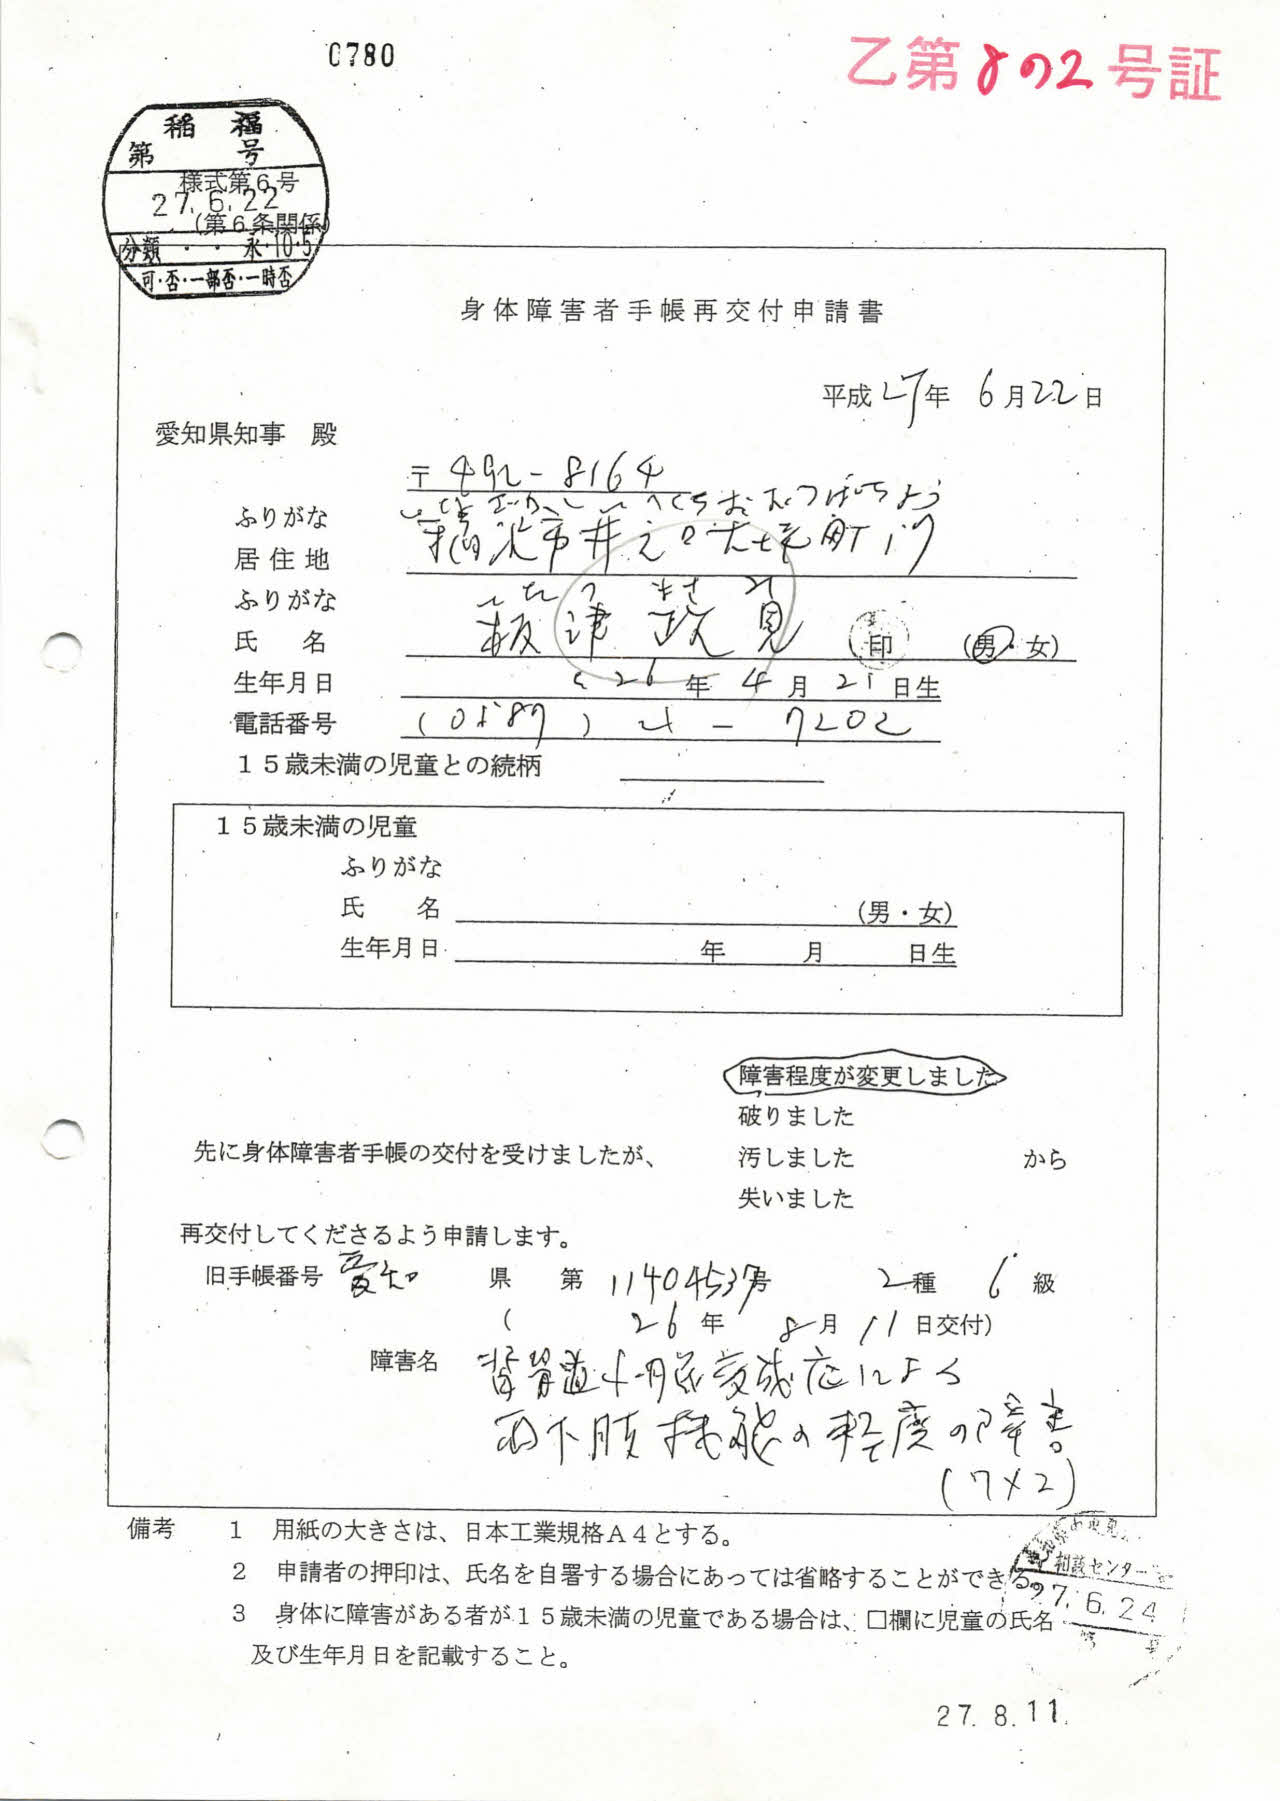 0780
乙第8の2号証
稲福
第 号
様式第6号
27.6.22
(第6条関係)
分類 ・ ・ 永・10・5
可・否・一部否・一時否
身体障害者手帳再交付申請書
平成27年 6月22日
愛知県知事 殿
〒492-8164
ふりがな
居住地 稲沢市井之口大坪町
ふりがな いたつ まさみ
氏 名 板津 政見 印 (男・女)
生年月日 26年 4月 21日生
電話番号 (0587) 21 - 7202
15歳未満の児童との続柄
15歳未満の児童
ふりがな
氏 名 (男・女)
生年月日 年 月 日生
障害程度が変更しました
破りました
先に身体障害者手帳の交付を受けましたが、 汚しました から
失いました
再交付してくださるよう申請します。
旧手帳番号 愛知 県 第 114045378号 2種 6級
( 26年 8月 11日交付)
障害名 脊髄小脳変成症による
両下肢機能の軽度の障害
(7×2)
備考 1 用紙の大きさは、日本工業規格A4とする。
2 申請者の押印は、氏名を自署する場合にあっては省略することができる。
3 身体に障害がある者が15歳未満の児童である場合は、□欄に児童の氏名
及び生年月日を記載すること。
相談センター
27.6.24
号
27.8.11.